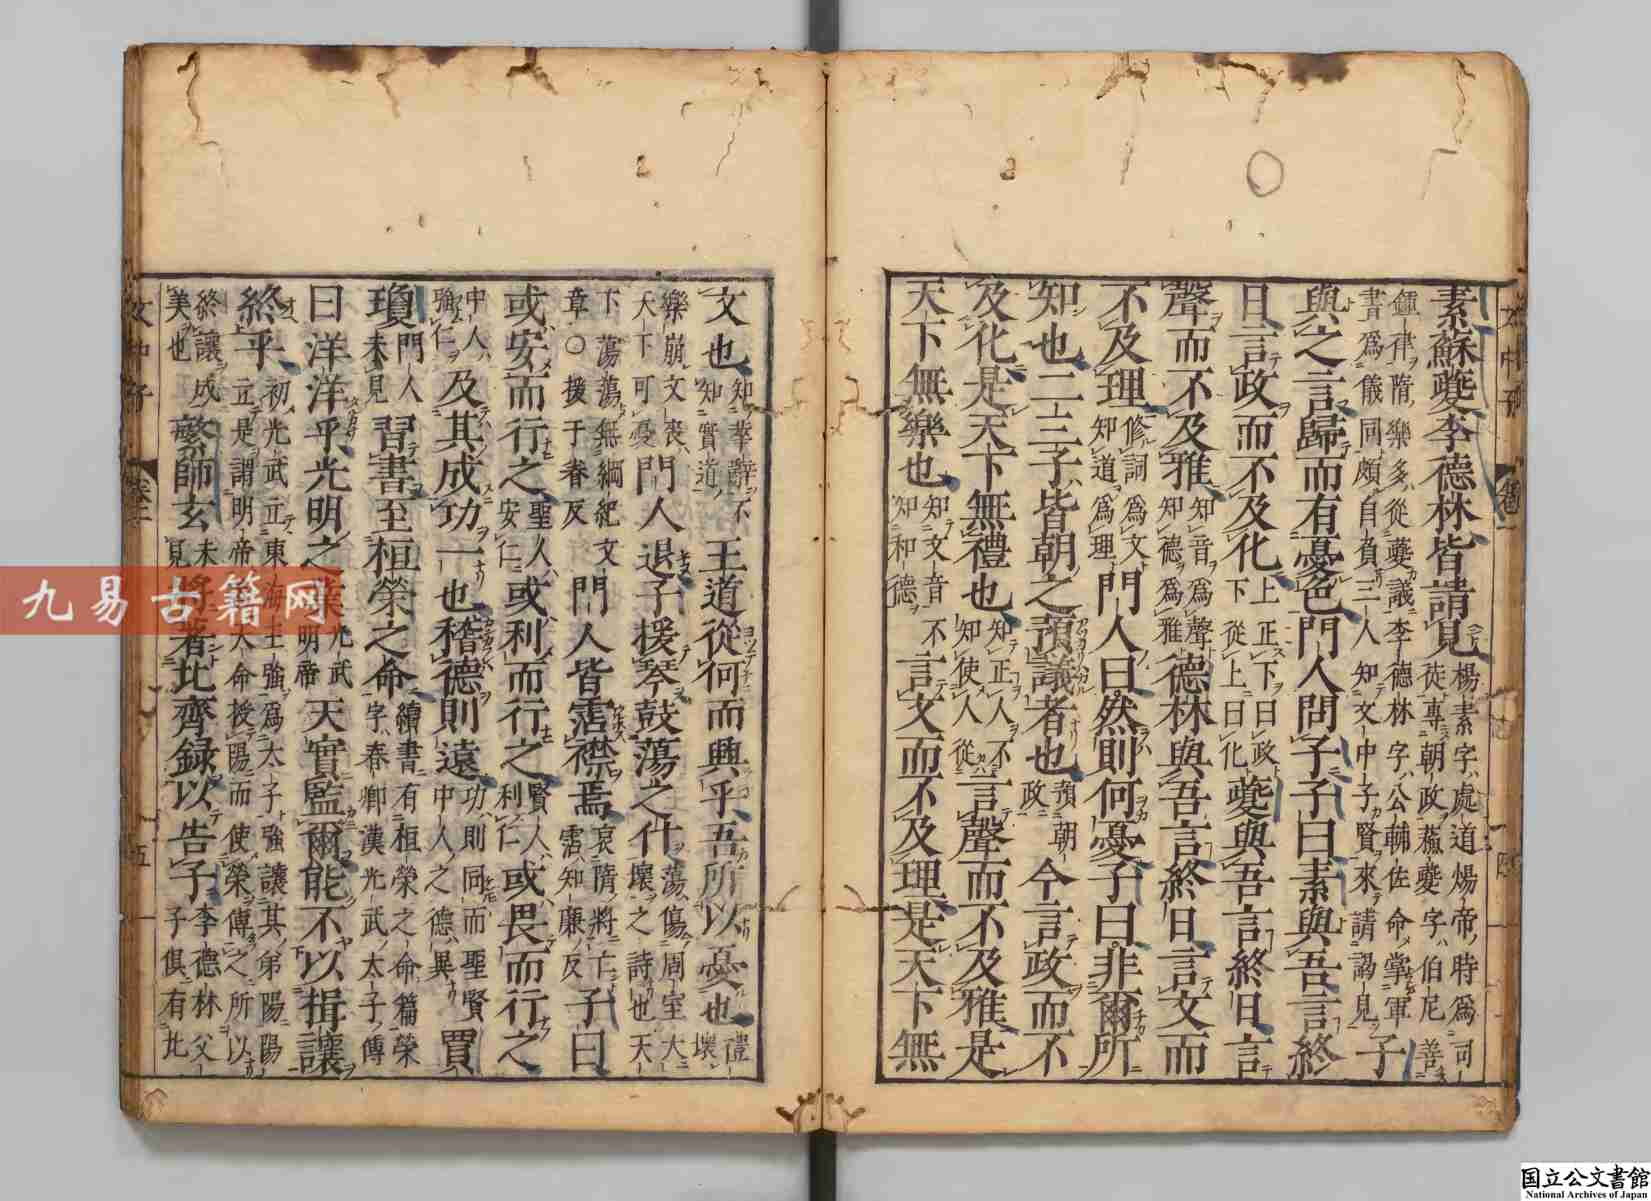 素蘇夔李德林皆請見楊素字處道煬帝時爲司徒專朝政蘇夔字伯尼善
鍾律隋樂多從夔議李德林字公輔佐命掌軍書爲儀同頗自負三人知文中子賢來請謁見子
與之言歸而有憂色門人問子子曰素與吾言終
日言政而不及化上正下曰政下從上曰化夔與吾言終日言
聲而不及雅知音爲聲知德爲雅德林與吾言終日言文而
不及理修詞爲文知道爲理門人曰然則何憂子曰非爾所
知也二三子皆朝之預議者也預朝政今言政而不
及化是天下無禮也知正人不知使人從言聲而不及雅是
天下無樂也知文音不知和德言文而不及理是天下無
文也知華辭不知實道王道從何而興乎吾所以憂也禮壞
樂崩文喪天下可憂門人退子援琴鼓蕩之什蕩傷周室大壞之詩也天
下蕩蕩無綱紀文章○援于眷反門人皆霑襟焉哀隋將亡霑知廉反子曰
或安而行之聖人安仁或利而行之賢人利仁或畏而行之
中人強仁及其成功一也稽德則遠功則同而聖賢中人之德異賈
瓊門人未見習書至桓榮之命續書有桓榮之命篇榮字春卿漢光武太子傅
曰洋洋乎光明之業光武明帝天實監爾能不以揖讓
終乎初光武立東海王強爲太子強讓其弟陽陽立是謂明帝榮太命授陽而使榮傅之所以
終讓成美也繁師玄未見將著北齊錄以告子李德林父子俱有北
文中子
卷二
四
文中子
卷二
五
九易古籍网
国立公文書館
National Archives of Japan